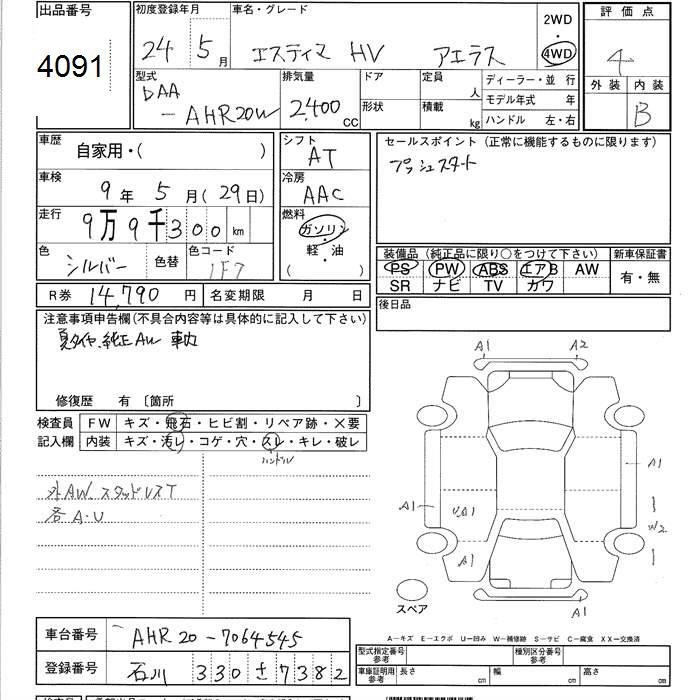 出品番号
4091
初度登録年月
24 5月
車名・グレード
エスティマ HV アエラス
2WD
・
4WD
評価点
4
外装 内装
B
型式
DAA
-AHR20W
排気量
2,400 cc
ドア
形状
定員 人
積載 kg
ディーラー・並行
モデル年式 年
ハンドル 左・右
車歴
自家用・( )
車検
9年 5月(29日)
走行
9万9千300km
色
シルバー
色替
色コード
1F7
シフト
AT
冷房
AAC
燃料
ガソリン
・
軽・油
( )
セールスポイント (正常に機能するものに限ります)
プッシュスタート
装備品 (純正品に限り○をつけて下さい)
PS PW ABS エアB AW
SR ナビ TV カワ
新車保証書
有・無
R券 14,790円
名変期限 月 日
後日品
注意事項申告欄(不具合内容等は具体的に記入して下さい)
夏タイヤ、純正AW 車内
修復歴 有 〔箇所 〕
検査員
記入欄
FW キズ・飛石・ヒビ割・リペア跡・×要
内装 キズ・汚レ・コゲ・穴・スレ・キレ・破レ
ハンドル
外AW. スタッドレスT
各A・U
A1 A2
A1
A1
U.A1
W2
A1
A1
スペア
車台番号
AHR20-7064545
登録番号
石川 330 ± 7382
A-キズ E-エクボ U-凹み W-補修跡 S-サビ C-腐食 XX-交換済
型式指定番号
参考
種別区分番号
参考
車庫証明用
参考
長さ cm
幅 cm
高さ cm